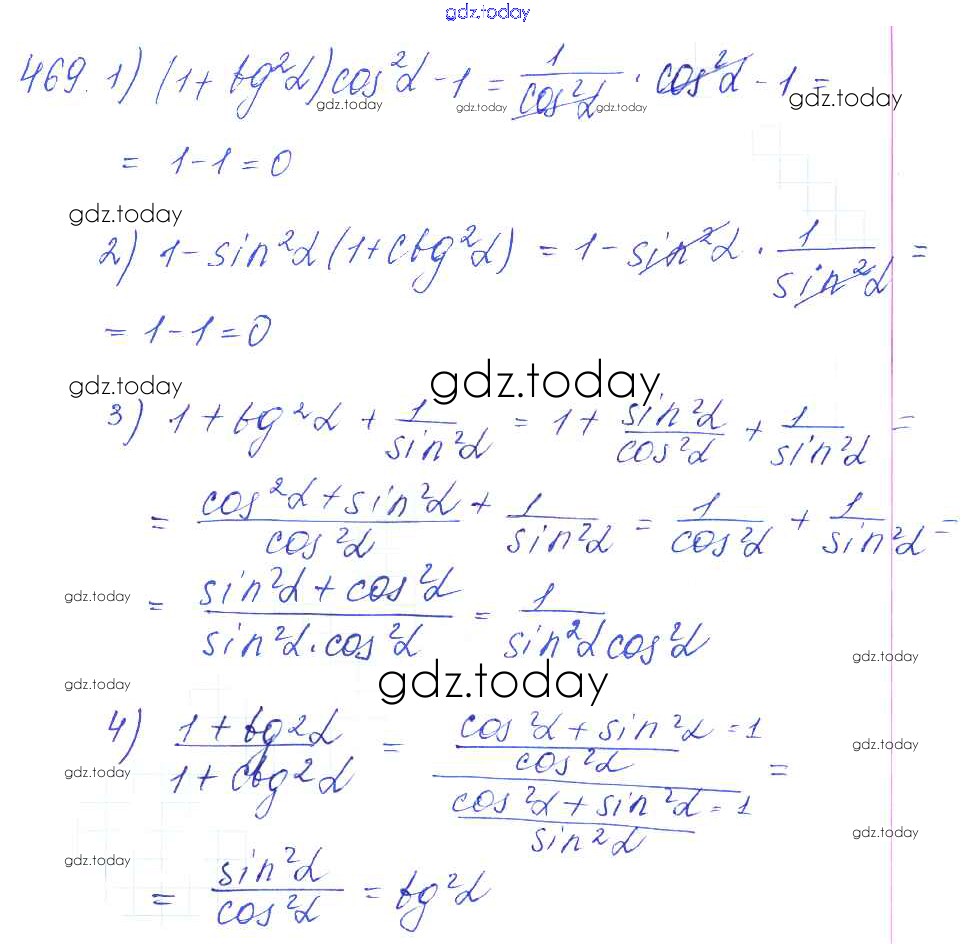 gdz.today
469. 1) (1 + tg²α) cos²α - 1 = 1/cos²α · cos²α - 1 =
gdz.today gdz.today gdz.today gdz.today
= 1 - 1 = 0
gdz.today
2) 1 - sin²α (1 + ctg²α) = 1 - sin²α · 1/sin²α =
= 1 - 1 = 0
gdz.today gdz.today
3) 1 + tg²α + 1/sin²α = 1 + sin²α/cos²α + 1/sin²α =
= (cos²α + sin²α)/cos²α + 1/sin²α = 1/cos²α + 1/sin²α =
gdz.today
= (sin²α + cos²α)/(sin²α · cos²α) = 1/(sin²α cos²α)
gdz.today
gdz.today gdz.today
4) (1 + tg²α)/(1 + ctg²α) = ((cos²α + sin²α = 1)/cos²α)/((cos²α + sin²α = 1)/sin²α) =
gdz.today
gdz.today
gdz.today
gdz.today
= sin²α/cos²α = tg²α